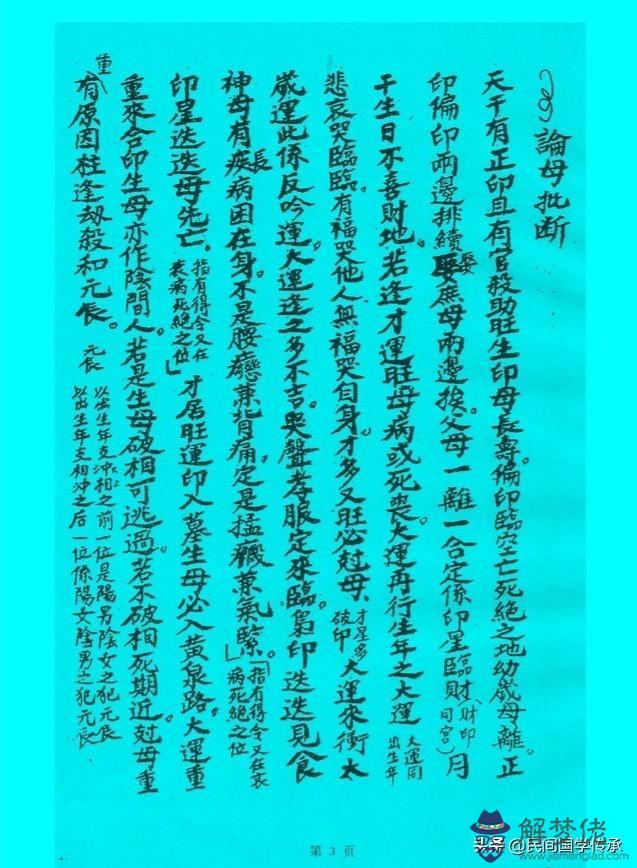 論母批断
天干有正印且有官殺助旺生印母長壽。偏印臨空亡死絕之地幼歲母離。正
印偏印兩邊排續娶庶母兩邊挨。父母一離一合定係印星臨財（財印同宮）月
干生日不喜財地。若逢才運旺母病或死喪。大運再行生年之大運 大運同出生年
悲哀哭臨臨。有福哭他人無福哭自身。才多又旺必尅母、才星多破印 大運來衝太
歲運此係反吟運。大運逢之多不吉。哭聲孝服定來臨。梟印迭迭見食
神母有長疾病困在身。不是腰癦兼背痛。定是氣緊。「指有得令又在衰病死絕之位
印星迭迭母先亡。指有得令又在衰病死絕之位」才居旺運印入墓生母必入黄泉路。大運重
重來合印生母亦作陰間人。若是生母破相可逃過。若不破相死期近尅母重
重有原因柱逢劫殺和元辰。元辰 以出生年支冲相之前一位是陽男陰女之犯元辰
以出生年支相冲之后一位係陽女陰男之犯元辰
第 3 页
解梦佬
www.jiemenglao.com
头条@民间国学传承